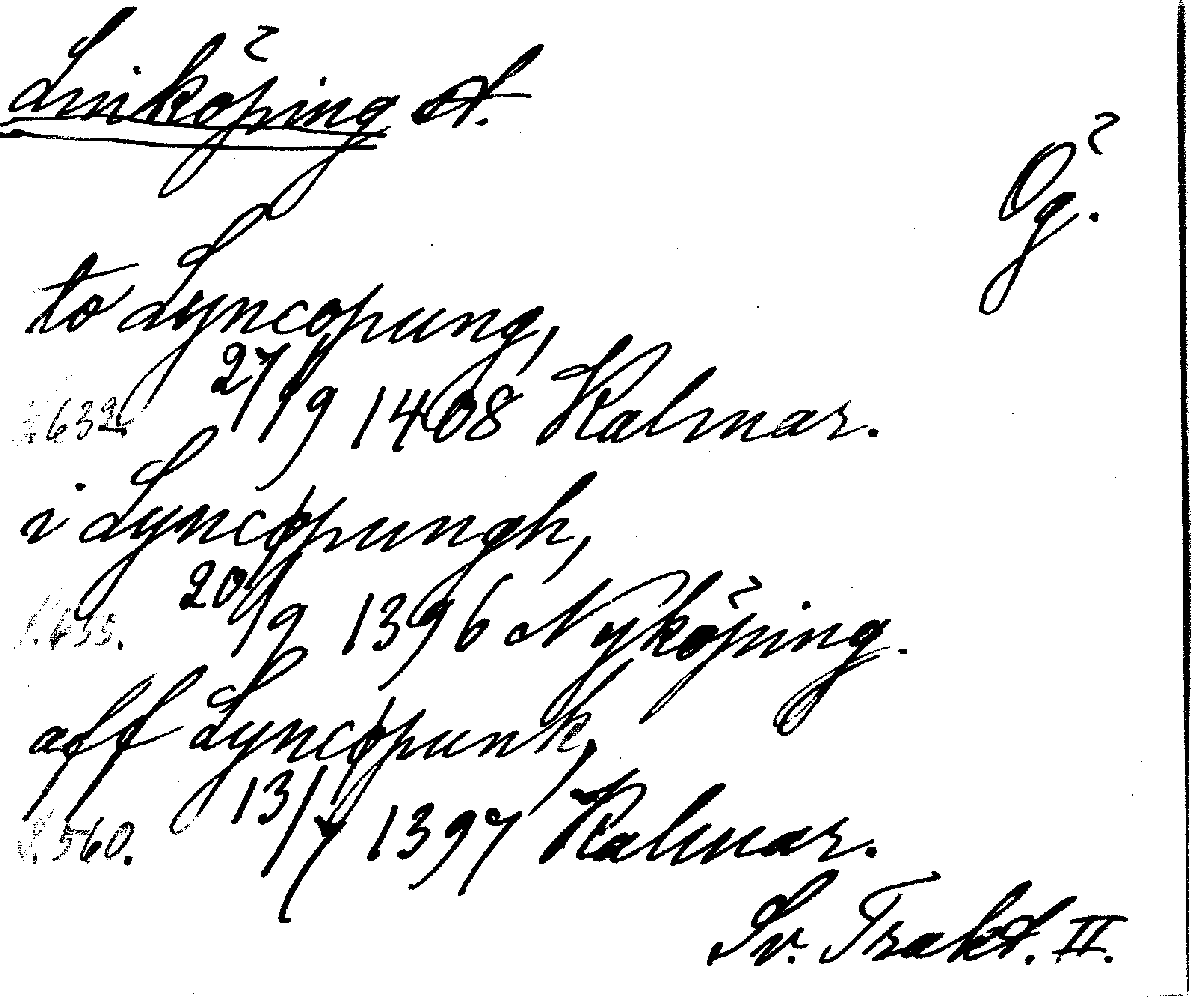 Linköping st.
Ög.
to Lyncopung,
s. 632. 27/9 1408 Kalmar.
i Lyncøpungh,
s. 635. 20/9 1396 Nyköping.
aff Lyncøpunk,
s. 560. 13/7 1397 Kalmar.
Sv. Trakt. II.